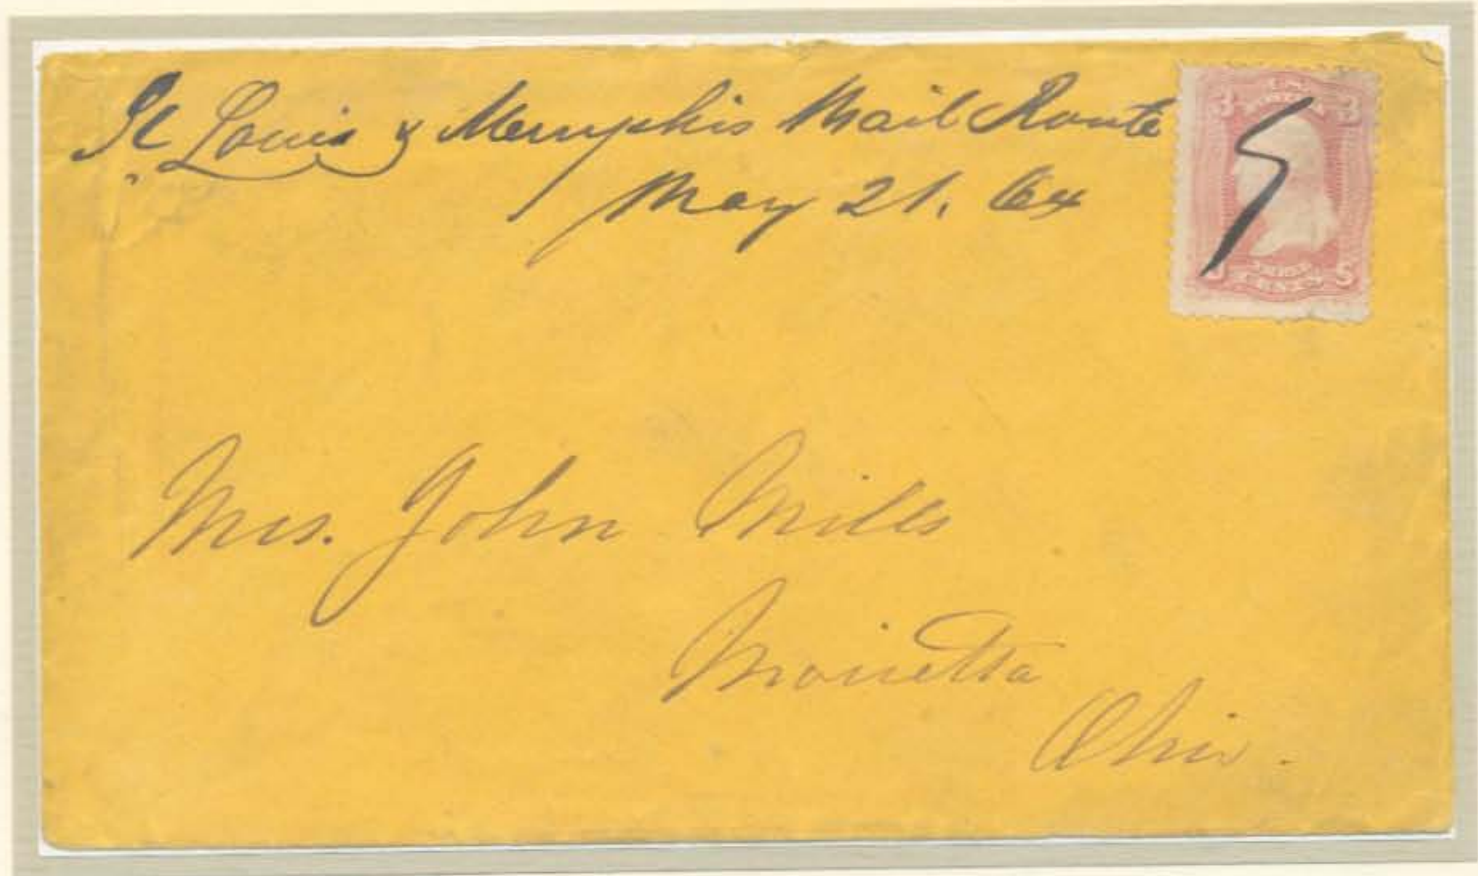 St. Louis & Memphis Mail Route
May 21. 64
3 3
U S
Mrs. John Mills
Marietta
Ohio.